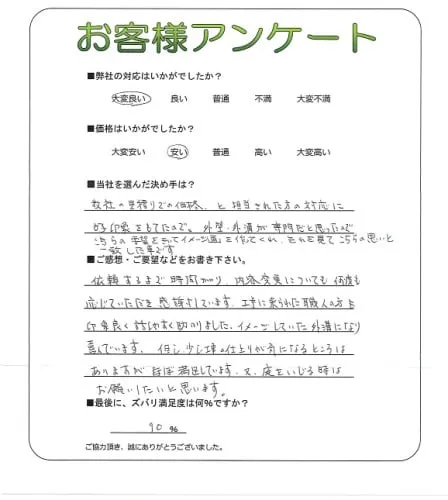 お客様アンケート
■弊社の対応はいかがでしたか？
大変良い 良い 普通 不満 大変不満
■価格はいかがでしたか？
大変安い 安い 普通 高い 大変高い
■当社を選んだ決め手は？
数社の見積りでの価格、と担当された方の対応に
好印象をもてたので。外壁・外溝が専門だと思ったので
こちらの希望をきいてイメージ画を作ってくれ、それを見てこちらの思いと
一致した事です
■ご感想・ご要望などをお書き下さい。
依頼するまで時間かかり、内容変更についても何度も
応じていただき感謝しています。工事に来られた職人の方も
印象良く話しやすく助かりました。イメージしていた外溝になり
喜んでいます。但し、少し の仕上りが気になるところは
ありますが ほぼ満足しています。又、庭をいじる時は
お願いしたいと思います。
■最後に、ズバリ満足度は何%ですか？
90 %
ご協力頂き、誠にありがとうございました。